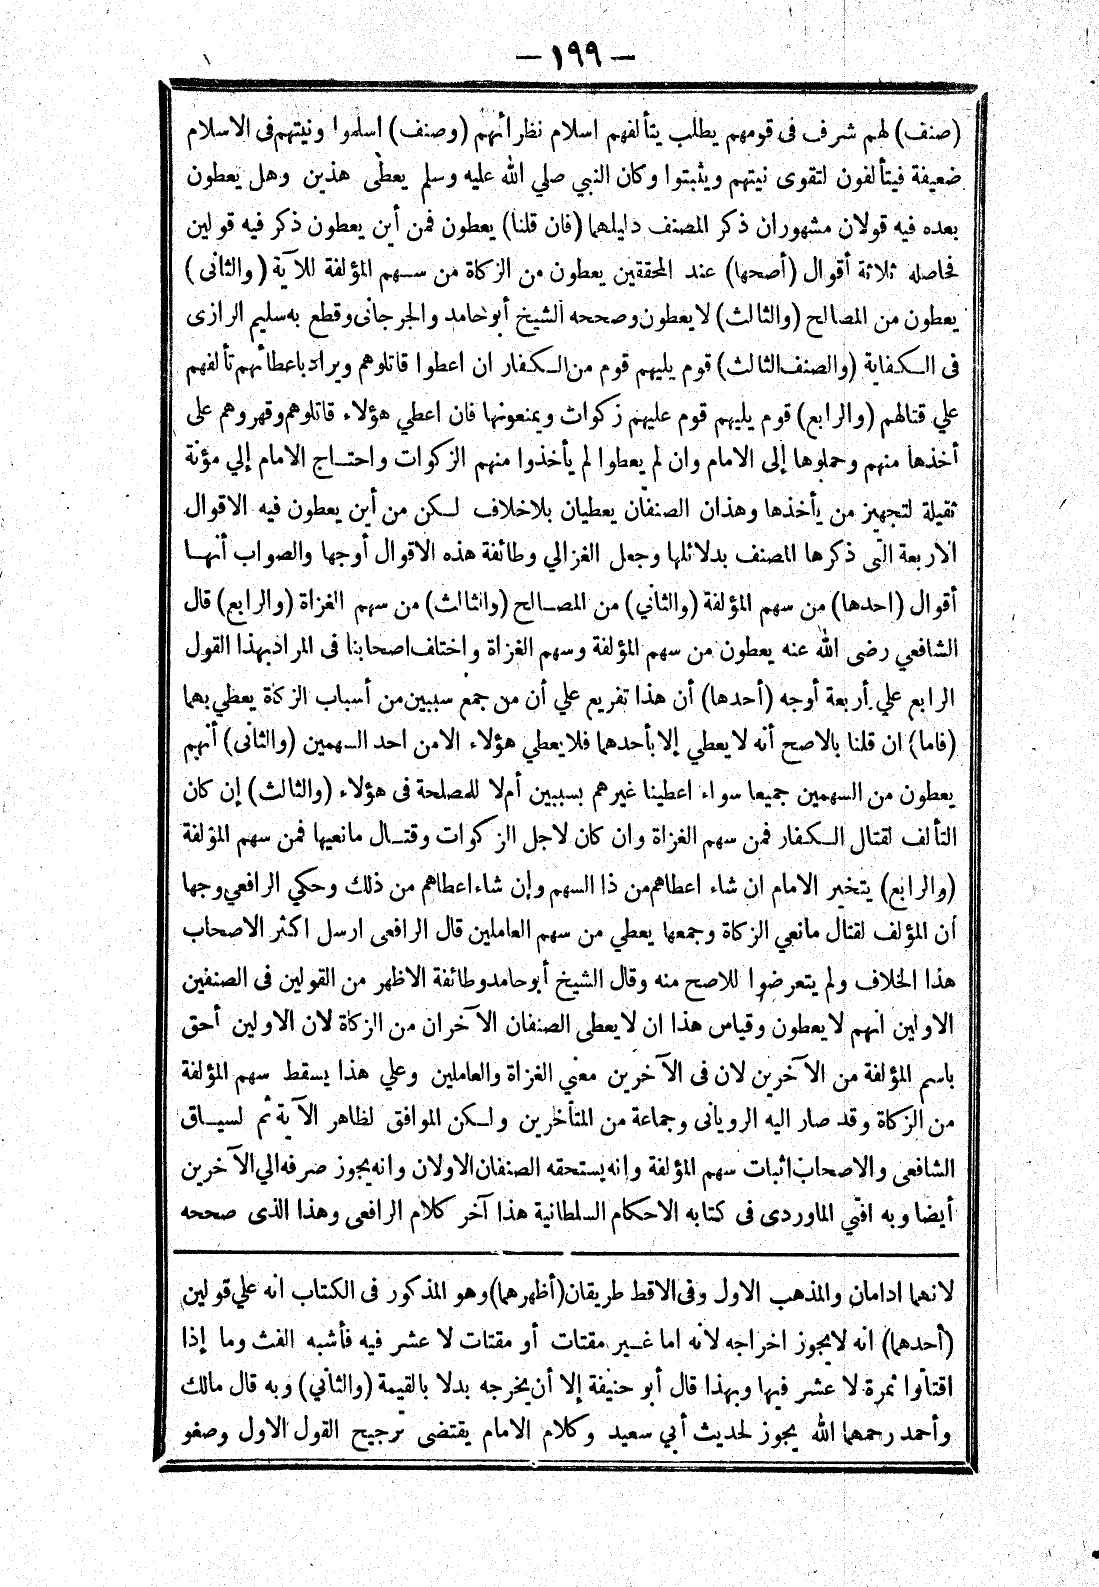 — ١٩٩ —
(صنف) لهم شرف فى قومهم يطلب يتألفهم اسلام نظرائهم (وصنف) اسلموا ونيتهم فى الاسلام
ضعيفة فيتألفون لتقوى نيتهم ويثبتوا وكان النبي صلي الله عليه وسلم يعطى هذين وهل يعطون
بعده فيه قولان مشهوران ذكر المصنف دليلهما (فان قلنا) يعطون فمن أين يعطون ذكر فيه قولين
فحاصله ثلاثة أقوال (أصحها) عند المحققين يعطون من الزكاة من سهم المؤلفة للآية (والثانى)
يعطون من المصالح (والثالث) لا يعطون وصححه الشيخ أبو حامد والجرجانى وقطع به سليم الرازى
فى الكفاية (والصنف الثالث) قوم يليهم قوم من الكفار ان اعطوا قاتلوهم ويراد باعطائهم تألفهم
علي قتالهم (والرابع) قوم يليهم قوم عليهم زكوات ويمنعونها فان اعطي هؤلاء قاتلوهم وقهروهم على
أخذها منهم وحملوها إلى الامام وان لم يعطوا لم يأخذوا منهم الزكوات واحتاج الامام إلي مؤنة
ثقيلة لتجهيز من يأخذها وهذان الصنفان يعطيان بلاخلاف لكن من أين يعطون فيه الاقوال
الاربعة التى ذكرها المصنف بدلائلها وجعل الغزالي وطائفة هذه الاقوال أوجها والصواب أنها
أقوال (احدها) من سهم المؤلفة (والثاني) من المصالح (والثالث) من سهم الغزاة (والرابع) قال
الشافعي رضى الله عنه يعطون من سهم المؤلفة وسهم الغزاة واختلف اصحابنا فى المراد بهذا القول
الرابع علي أربعة أوجه (أحدها) أن هذا تفريع علي أن من جمع سببين من أسباب الزكاة يعطي بهما
(فاما) ان قلنا بالاصح أنه لا يعطي إلا بأحدهما فلا يعطي هؤلاء الا من احد السهمين (والثانى) أنهم
يعطون من السهمين جميعا سواء اعطينا غيرهم بسببين أم لا للمصلحة فى هؤلاء (والثالث) إن كان
التألف لقتال الكفار فمن سهم الغزاة وان كان لاجل الزكوات وقتال مانعيها فمن سهم المؤلفة
(والرابع) يتخير الامام ان شاء اعطاهم من ذا السهم وإن شاء اعطاهم من ذلك وحكي الرافعي وجها
ان المؤلف لقتال مانعي الزكاة وجمعها يعطي من سهم العاملين قال الرافعى ارسل اكثر الاصحاب
هذا الخلاف ولم يتعرضوا للاصح منه وقال الشيخ أبو حامد وطائفة الاظهر من القولين فى الصنفين
الاولين انهم لا يعطون وقياس هذا ان لا يعطى الصنفان الآخران من الزكاة لان الاولين أحق
باسم المؤلفة من الآخرين لان فى الآخرين معني الغزاة والعاملين وعلي هذا يسقط سهم المؤلفة
من الزكاة وقد صار اليه الرويانى وجماعة من المتأخرين ولكن الموافق لظاهر الآية ثم لسياق
الشافعى والاصحاب اثبات سهم المؤلفة وانه يستحقه الصنفان الاولان وانه يجوز صرفه الي الآخرين
أيضا وبه افتي الماوردى فى كتابه الاحكام السلطانية هذا آخر كلام الرافعى وهذا الذى صححه
لانهما ادامان والمذهب الاول وفى الاقط طريقان (أظهرهما) وهو المذكور فى الكتاب انه علي قولين
(أحدهما) انه لا يجوز اخراجه لانه اما غير مقتات أو مقتات لا عشر فيه فأشبه الفث وما إذا
اقتاتوا ثمرة لا عشر فيها وبهذا قال أبو حنيفة إلا أن يخرجه بدلا بالقيمة (والثانى) وبه قال مالك
وأحمد رحمهما الله يجوز لحديث أبي سعيد وكلام الامام يقتضى ترجيح القول الاول وصغو